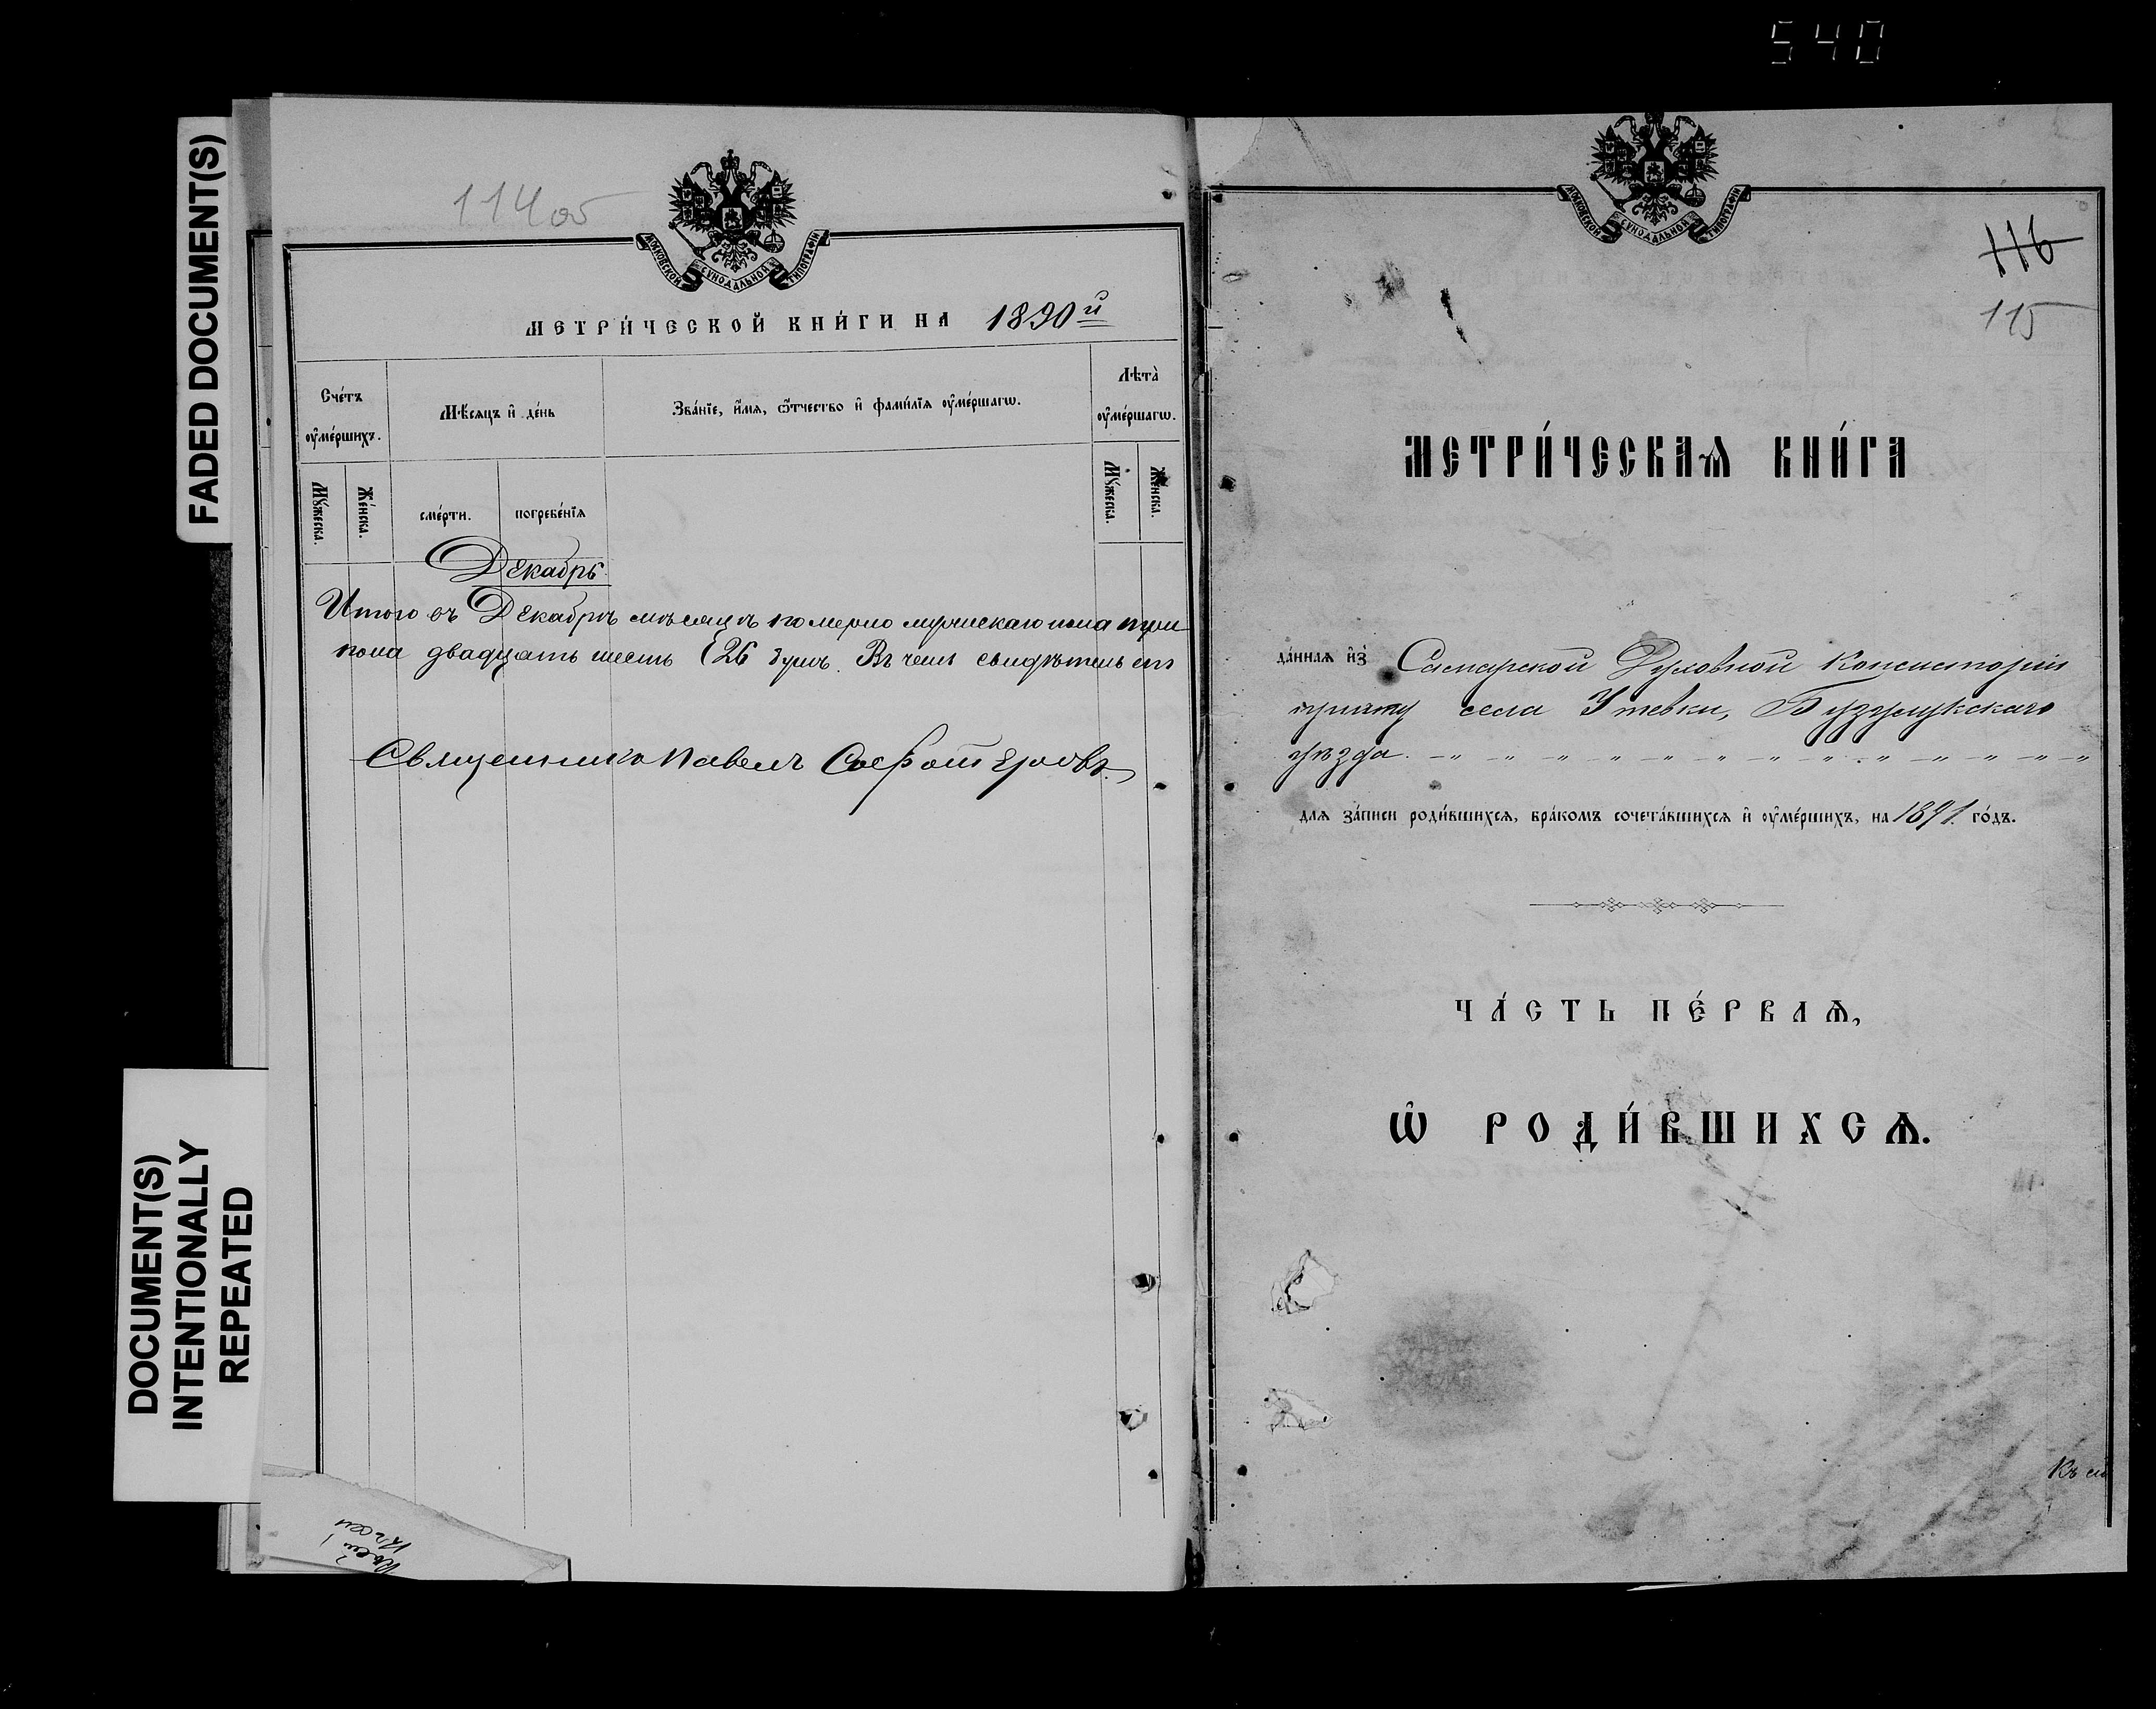 540
FADED DOCUMENT(S)
DOCUMENT(S)
INTENTIONALLY
REPEATED
114об
МОСКОВСКОЙ СѴНОДАЛЬНОЙ ТИПОГРАФІИ
МЕТРИ́ЧЕСКОЙ КНИ́ГИ НА 1890й
Сче́тъ
оумершихъ.
Мѣ́сяцъ и де́нь
Зва́нїе, и́мя, ѿчество и фами́лїя оуме́ршагѡ.
Лѣта̀
оуме́ршагѡ.
Мꙋ́жеска.
Же́нска.
сме́рти.
погребе́нїѧ
Мꙋ́жеска.
Же́нска.
Декабрь
Итого въ Декабрѣ мѣсяцѣ померло мужскаго пола
пола двадцать шесть (26 Въ чемъ свидѣтельст
Священникъ Павелъ
МОСКОВСКОЙ СѴНОДАЛЬНОЙ ТИПОГРАФІИ
116
115
МЕТРИ́ЧЕСКАѦ КНИ́ГА
да́нная и҆зъ Самарской Духовной Консисторіи
причту села Утевки, Бузулукскаго
уѣзда.
для за́писи роди́вшихся, бра́комъ сочета́вшихся и оуме́ршихъ, на 1891. го́дъ.
ЧА́СТЬ ПЕ́РВАѦ,
Ѡ РОДИ́ВШИХСѦ.
Къ се